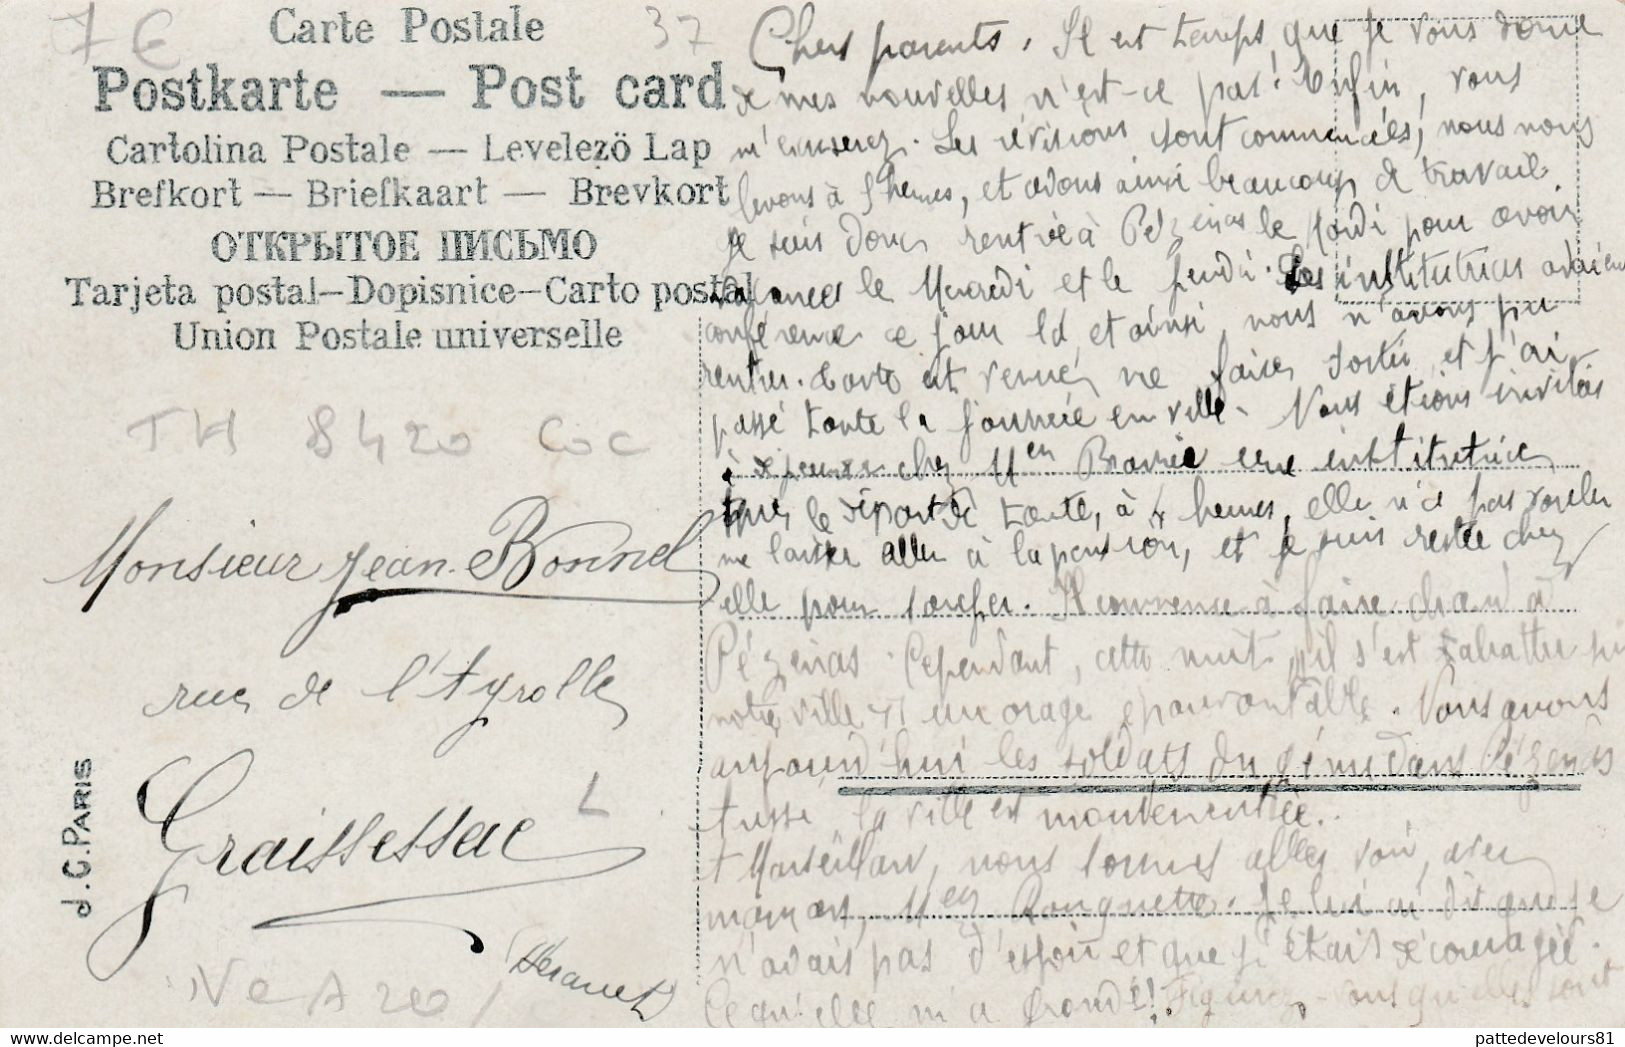 7 €
37
Carte Postale
Postkarte — Post card
Cartolina Postale — Levelezö Lap
Brefkort — Briefkaart — Brevkort
ОТКРЫТОЕ ПИСЬМО
Tarjeta postal-Dopisnice-Carto postal
Union Postale universelle
TH 8420 COC
Monsieur Jean Bonnel
rue de l'Ayrolle
Graissessac
L
(Hérault)
J.C. PARIS
Chers parents. Il est temps que je vous donne
de mes nouvelles n'est-ce pas! Enfin, vous
m'excuserez. Les révisions sont commencées, nous nous
levons à 5 heures, et avons ainsi beaucoup de travail.
Je suis donc rentrée à Pézenas le Mardi pour avoir
vacances le Mercredi et le Jeudi. Les institutrices avaient
conférence ce jour là et ainsi nous n'avons pu
rentrer. Tante est venue me faire sortir et j'ai
passé toute la journée en ville. Nous étions invitées
à déjeuner chez Mme une institutrice
Après le départ de tante, à 4 heures, elle n'a pas voulu
me laisser aller à la pension, et je suis restée chez
elle pour souper. Il commence à faire chaud à
Pézenas. Cependant, cette nuit, il s'est abattu sur
notre ville un orage épouvantable. Nous avons
aujourd'hui les soldats du génie dans Pézenas
Aussi la ville est mouvementée.
A Marseillan, nous sommes allées voir, avec
maman, Mme Rouquette. Je lui ai dit que je
n'avais pas d'espoir et que j'étais découragée.
Ce qu'elle m'a grondé! Figurez-vous qu'elles sont
pattedevelours81